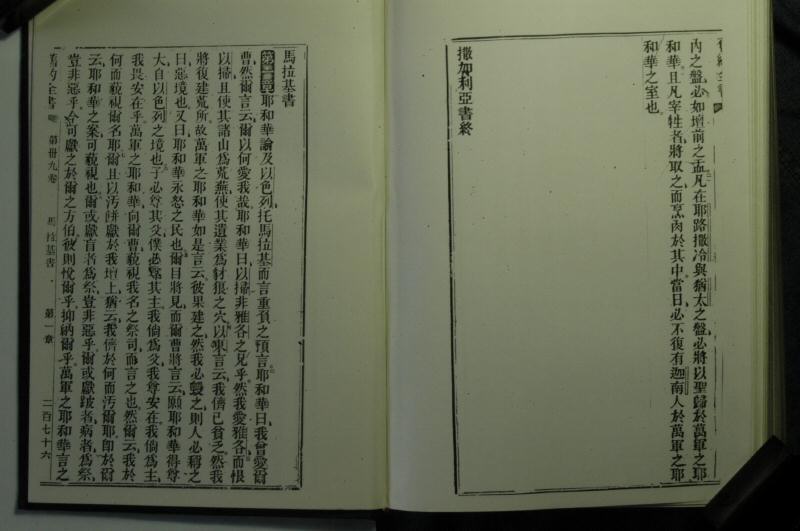 內之盤必如壇前之盂凡在耶路撒冷與猶太之盤必將以聖歸於萬軍之耶
和華且凡宰牲者將取之而烹肉於其中當日必不復有迦南人於萬軍之耶
和華之室也
撒加利亞書終
馬拉基書
第一章耶和華諭及以色列托馬拉基而言重負之預言耶和華曰我曾愛爾
曹然爾言云爾以何愛我哉耶和華曰以掃非雅各之兄乎然我愛雅各而恨
以掃且使其諸山為荒蕪使其遺業為豺狼之穴以東言云我儕已貧乏然我
將復建荒所故萬軍之耶和華如是言云彼果建之然我必毀之則人必稱之
曰惡境也又曰耶和華永怒之民也爾目將見而爾曹將言云願耶和華得尊
大自以色列之境也子必尊其父僕必尊其主我倘為父我尊安在我倘為主
我畏安在乎萬軍之耶和華向爾曹藐視我名之祭司而言之也然爾云我於
何而藐視爾名耶爾且以汚餅獻於我壇上猶云我儕於何而汚爾耶即於爾
云耶和華之案可藐視也爾或獻盲者為祭豈非惡乎爾或獻跛者病者為祭
豈非惡乎今可獻之於爾之方伯彼則悅爾乎抑納爾乎萬軍之耶和華言之
舊約全書
第卅九卷
馬拉基書
第一章
二百七十六